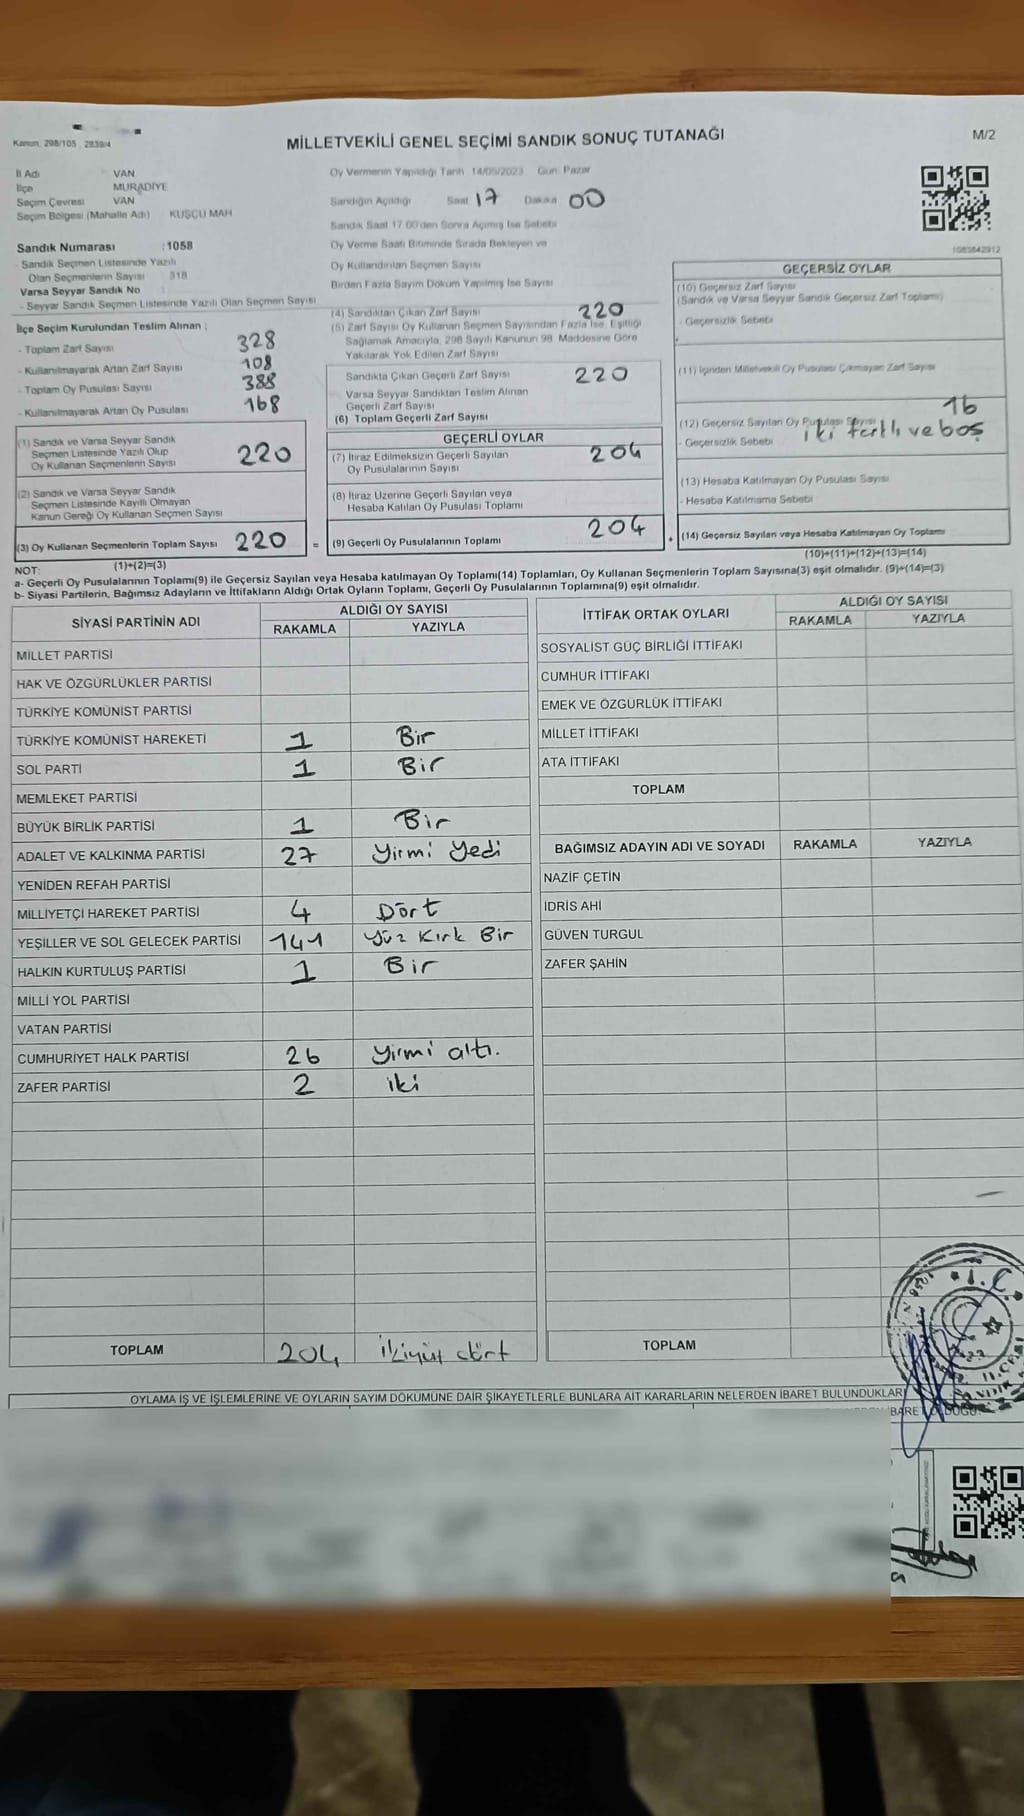 Kanun: 298/105 , 2839/4
MİLLETVEKİLİ GENEL SEÇİMİ SANDIK SONUÇ TUTANAĞI
M/2
İl Adı VAN
İlçe MURADİYE
Seçim Çevresi VAN
Seçim Bölgesi (Mahalle Adı) KUŞÇU MAH
Sandık Numarası : 1058
- Sandık Seçmen Listesinde Yazılı
Olan Seçmenlerin Sayısı 318
Varsa Seyyar Sandık No
- Seyyar Sandık Seçmen Listesinde Yazılı Olan Seçmen Sayısı
İlçe Seçim Kurulundan Teslim Alınan ;
- Toplam Zarf Sayısı 328
- Kullanılmayarak Artan Zarf Sayısı 108
- Toplam Oy Pusulası Sayısı 388
- Kullanılmayarak Artan Oy Pusulası 168
(1) Sandık ve Varsa Seyyar Sandık
Seçmen Listesinde Yazılı Olup
Oy Kullanan Seçmenlerin Sayısı 220
(2) Sandık ve Varsa Seyyar Sandık
Seçmen Listesinde Kayıtlı Olmayan
Kanun Gereği Oy Kullanan Seçmen Sayısı
(3) Oy Kullanan Seçmenlerin Toplam Sayısı 220 =
(1)+(2)=(3)
Oy Vermenin Yapıldığı Tarih 14/05/2023 Gün: Pazar
Sandığın Açıldığı Saat 17 Dakika 00
Sandık Saat 17.00'den Sonra Açılmış İse Sebebi
Oy Verme Saati Bitiminde Sırada Bekleyen ve
Oy Kullandırılan Seçmen Sayısı
Birden Fazla Sayım Döküm Yapılmış İse Sayısı
(4) Sandıktan Çıkan Zarf Sayısı 220
(5) Zarf Sayısı Oy Kullanan Seçmen Sayısından Fazla İse, Eşitliği
Sağlamak Amacıyla, 298 Sayılı Kanunun 98. Maddesine Göre
Yakılarak Yok Edilen Zarf Sayısı
Sandıkta Çıkan Geçerli Zarf Sayısı 220
Varsa Seyyar Sandıktan Teslim Alınan
Geçerli Zarf Sayısı
(6) Toplam Geçerli Zarf Sayısı
GEÇERLİ OYLAR
(7) İtiraz Edilmeksizin Geçerli Sayılan
Oy Pusulalarının Sayısı 204
(8) İtiraz Üzerine Geçerli Sayılan veya
Hesaba Katılan Oy Pusulası Toplamı
(9) Geçerli Oy Pusulalarının Toplamı 204 +
1083842912
GEÇERSİZ OYLAR
(10) Geçersiz Zarf Sayısı
(Sandık ve Varsa Seyyar Sandık Geçersiz Zarf Toplamı)
- Geçersizlik Sebebi
(11) İçinden Milletvekili Oy Pusulası Çıkmayan Zarf Sayısı
(12) Geçersiz Sayılan Oy Pusulası Sayısı 16
- Geçersizlik Sebebi iki ve boş
(13) Hesaba Katılmayan Oy Pusulası Sayısı
- Hesaba Katılmama Sebebi
(14) Geçersiz Sayılan veya Hesaba Katılmayan Oy Toplamı
(10)+(11)+(12)+(13)=(14)
NOT:
a- Geçerli Oy Pusulalarının Toplamı(9) ile Geçersiz Sayılan veya Hesaba katılmayan Oy Toplamı(14) Toplamları, Oy Kullanan Seçmenlerin Toplam Sayısına(3) eşit olmalıdır. (9)+(14)=(3)
b- Siyasi Partilerin, Bağımsız Adayların ve İttifakların Aldığı Ortak Oyların Toplamı, Geçerli Oy Pusulalarının Toplamına(9) eşit olmalıdır.
SİYASİ PARTİNİN ADI ALDIĞI OY SAYISI
RAKAMLA YAZIYLA
MİLLET PARTİSİ
HAK VE ÖZGÜRLÜKLER PARTİSİ
TÜRKİYE KOMÜNİST PARTİSİ
TÜRKİYE KOMÜNİST HAREKETİ 1 Bir
SOL PARTİ 1 Bir
MEMLEKET PARTİSİ
BÜYÜK BİRLİK PARTİSİ 1 Bir
ADALET VE KALKINMA PARTİSİ 27 Yirmi Yedi
YENİDEN REFAH PARTİSİ
MİLLİYETÇİ HAREKET PARTİSİ 4 Dört
YEŞİLLER VE SOL GELECEK PARTİSİ 141 Yüz Kırk Bir
HALKIN KURTULUŞ PARTİSİ 1 Bir
MİLLİ YOL PARTİSİ
VATAN PARTİSİ
CUMHURİYET HALK PARTİSİ 26 Yirmi altı.
ZAFER PARTİSİ 2 iki
TOPLAM 204 İkiyüz dört
İTTİFAK ORTAK OYLARI ALDIĞI OY SAYISI
RAKAMLA YAZIYLA
SOSYALİST GÜÇ BİRLİĞİ İTTİFAKI
CUMHUR İTTİFAKI
EMEK VE ÖZGÜRLÜK İTTİFAKI
MİLLET İTTİFAKI
ATA İTTİFAKI
TOPLAM
BAĞIMSIZ ADAYIN ADI VE SOYADI RAKAMLA YAZIYLA
NAZİF ÇETİN
İDRİS AHİ
GÜVEN TURGUL
ZAFER ŞAHİN
TOPLAM
OYLAMA İŞ VE İŞLEMLERİNE VE OYLARIN SAYIM DÖKÜMÜNE DAİR ŞİKAYETLERLE BUNLARA AİT KARARLARIN NELERDEN İBARET BULUNDUKLARI